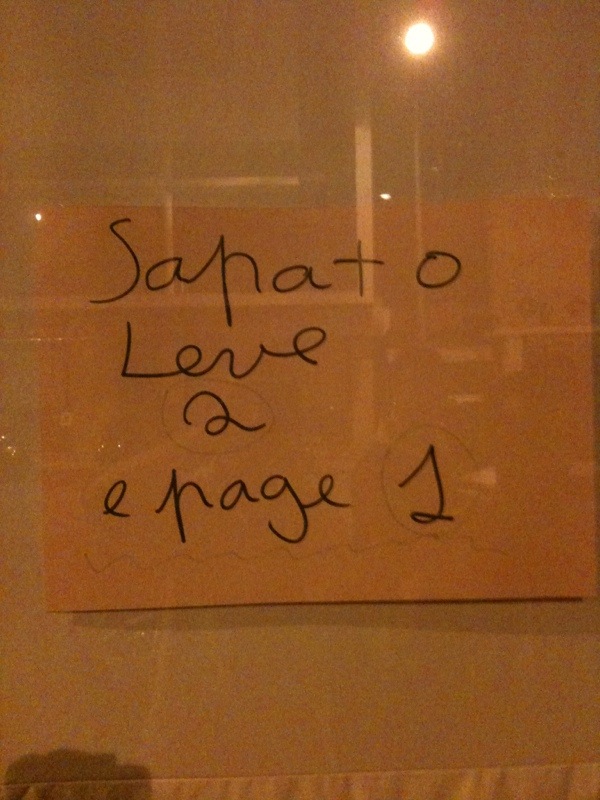 Sapato
Leve
2
e page 1